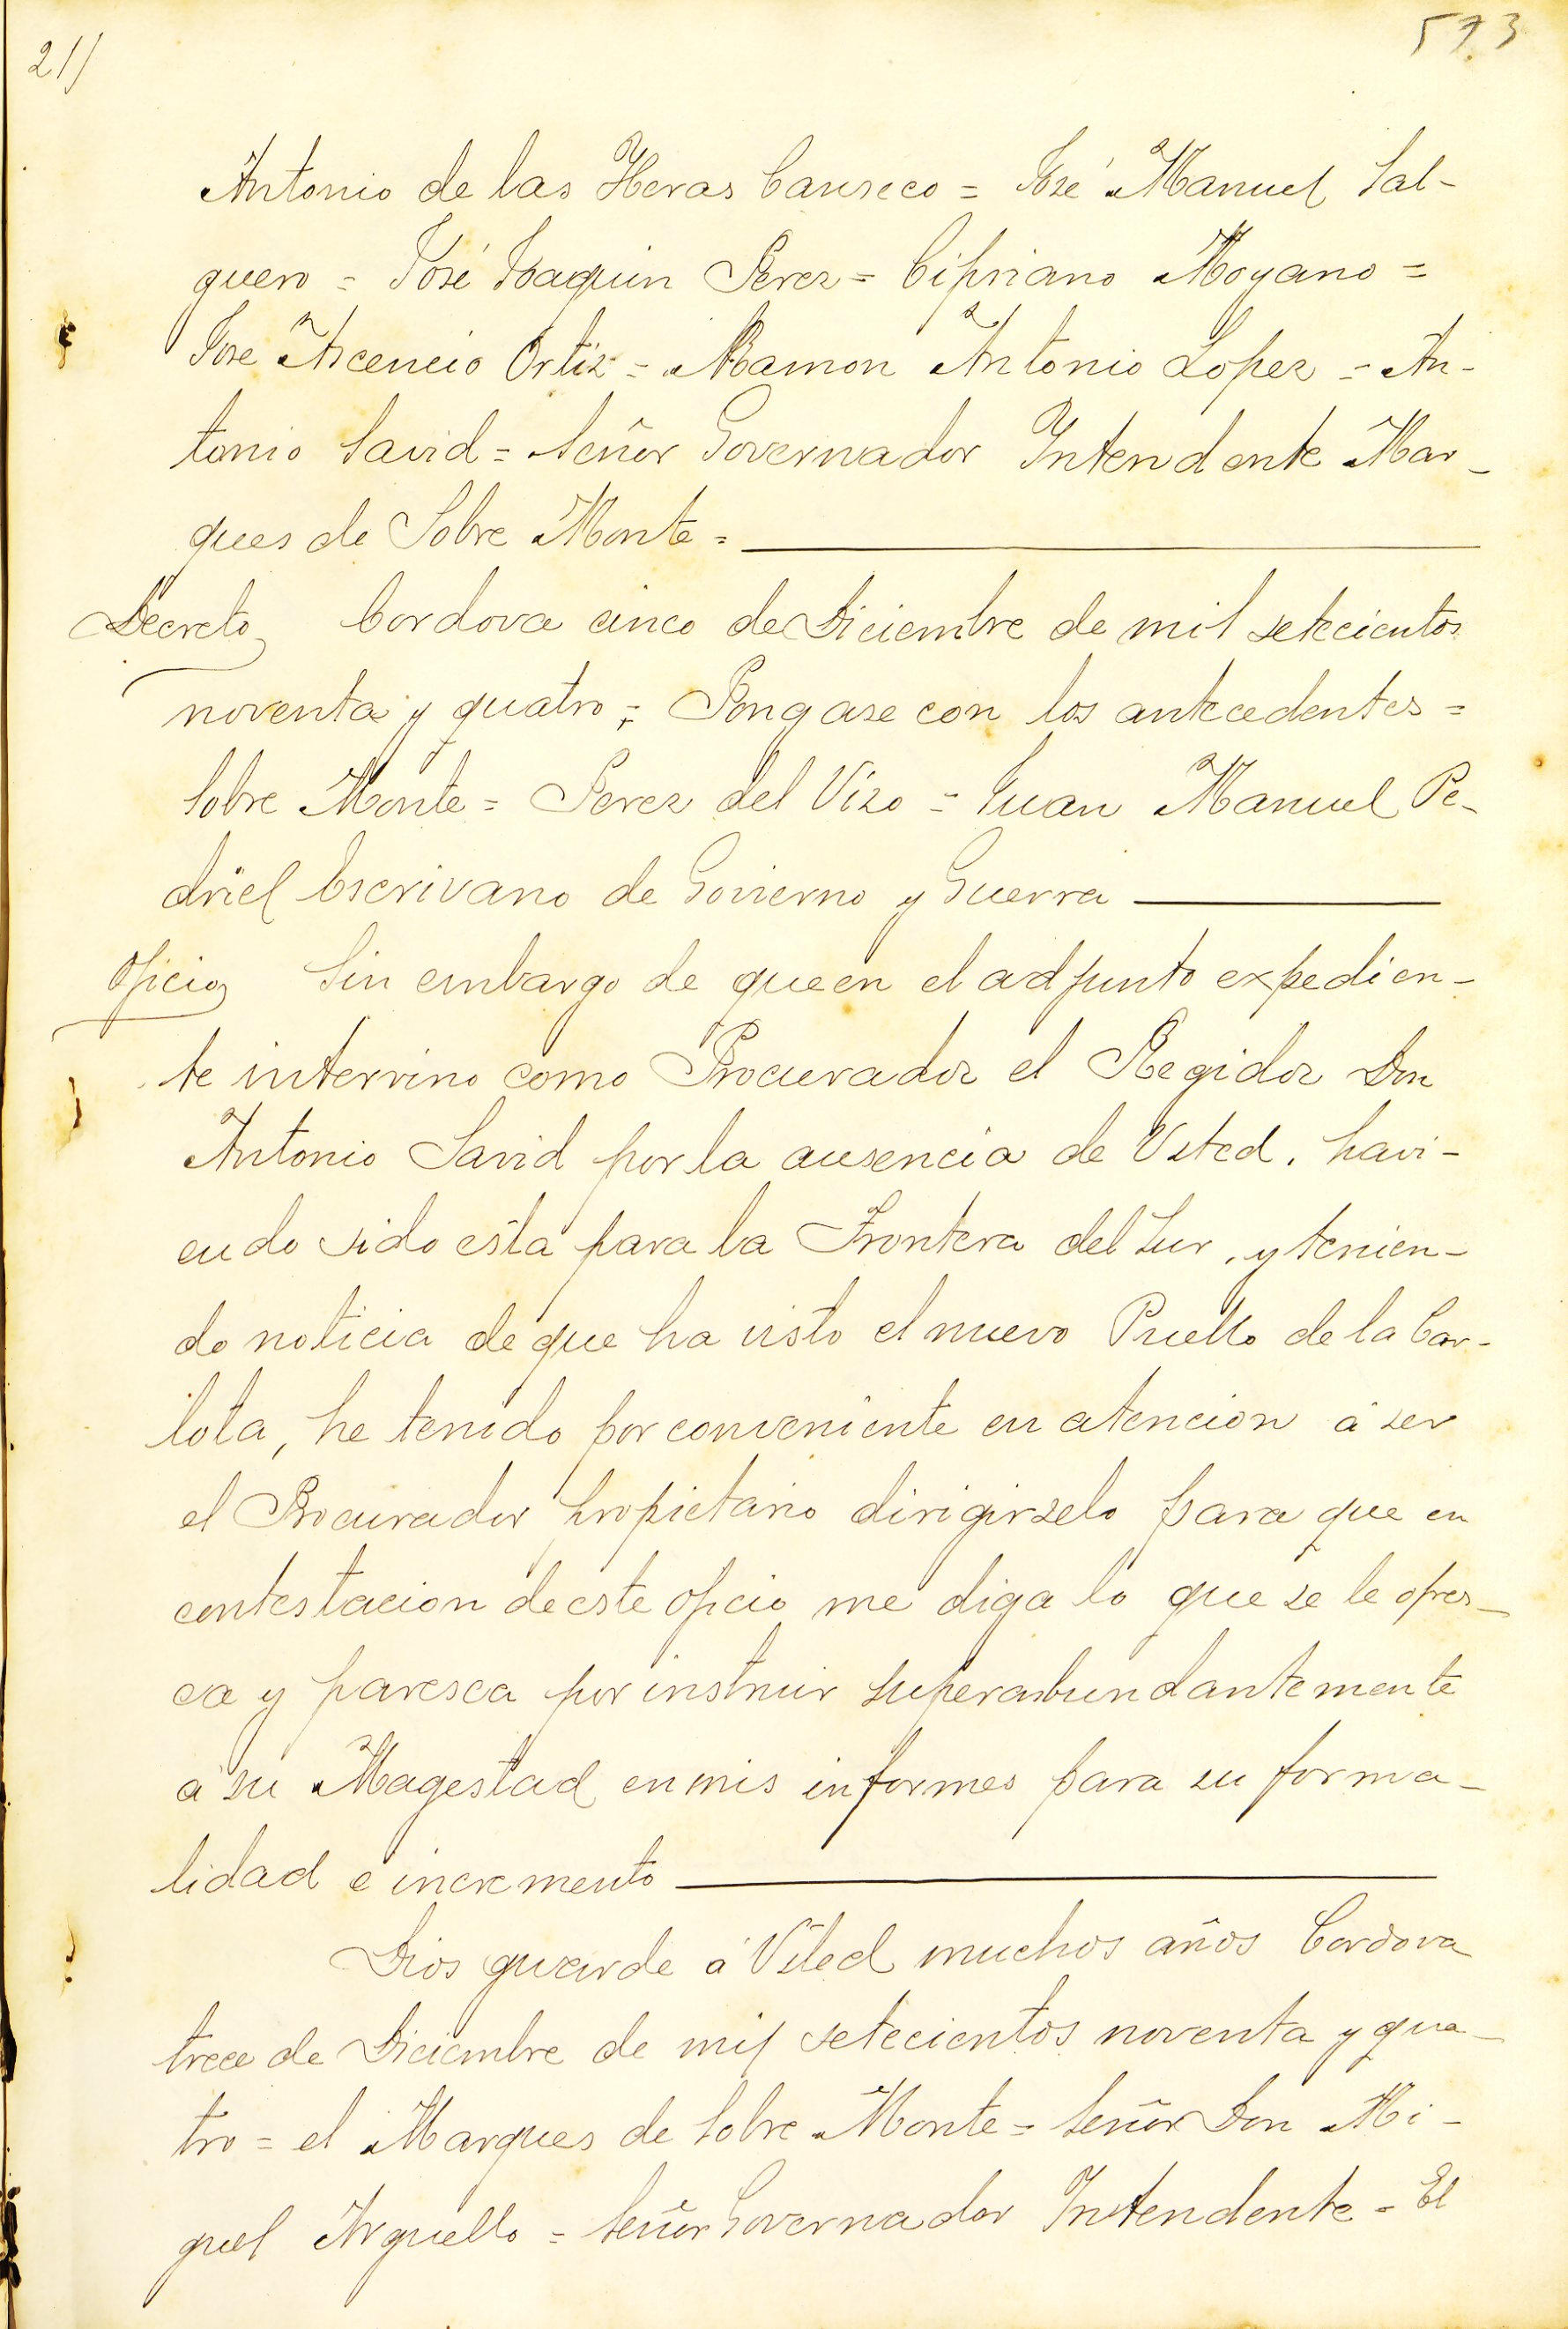 21)
573
Antonio de las Heras Canseco = José Manuel Sal-
guero = José Joaquin Perez = Cipriano Moyano =
Jose Ascencio Ortiz = Ramon Antonio Lopez = An-
tonio Savid = Señor Governador Intendente Mar-
ques de Sobre Monte =
Decreto Cordova cinco de Diciembre de mil setecientos
noventa y quatro = Pongase con los antecedentes =
Sobre Monte = Perez del Viso = Juan Manuel Pe-
driel Escrivano de Govierno y Guerra
Oficio Sin embargo de que en el adjunto expedien-
te intervino como Procurador el Regidor Don
Antonio Savid por la ausencia de Usted, havi-
endo sido esta para la Frontera del Sur, y tenien-
do noticia de que ha visto el nuevo Pueblo de la Car-
lota, he tenido por conveniente en atencion á ser
el Procurador propietario dirigirselo para que en
contestacion de este oficio me diga lo que se le ofres-
ca y paresca por instruir superabundantemente
á su Magestad en mis informes para su forma-
lidad e incremento
Dios guarde á Usted muchos años Cordova
trece de Diciembre de mil setecientos noventa y qua-
tro = el Marques de Sobre Monte = Señor Don Mi-
guel Arguello = Señor Governador Intendente = El